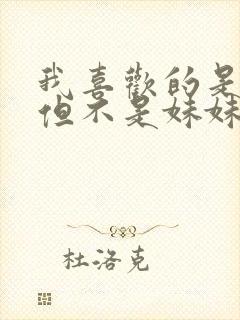 我喜歡的是
但不是妹妹
杜洛克